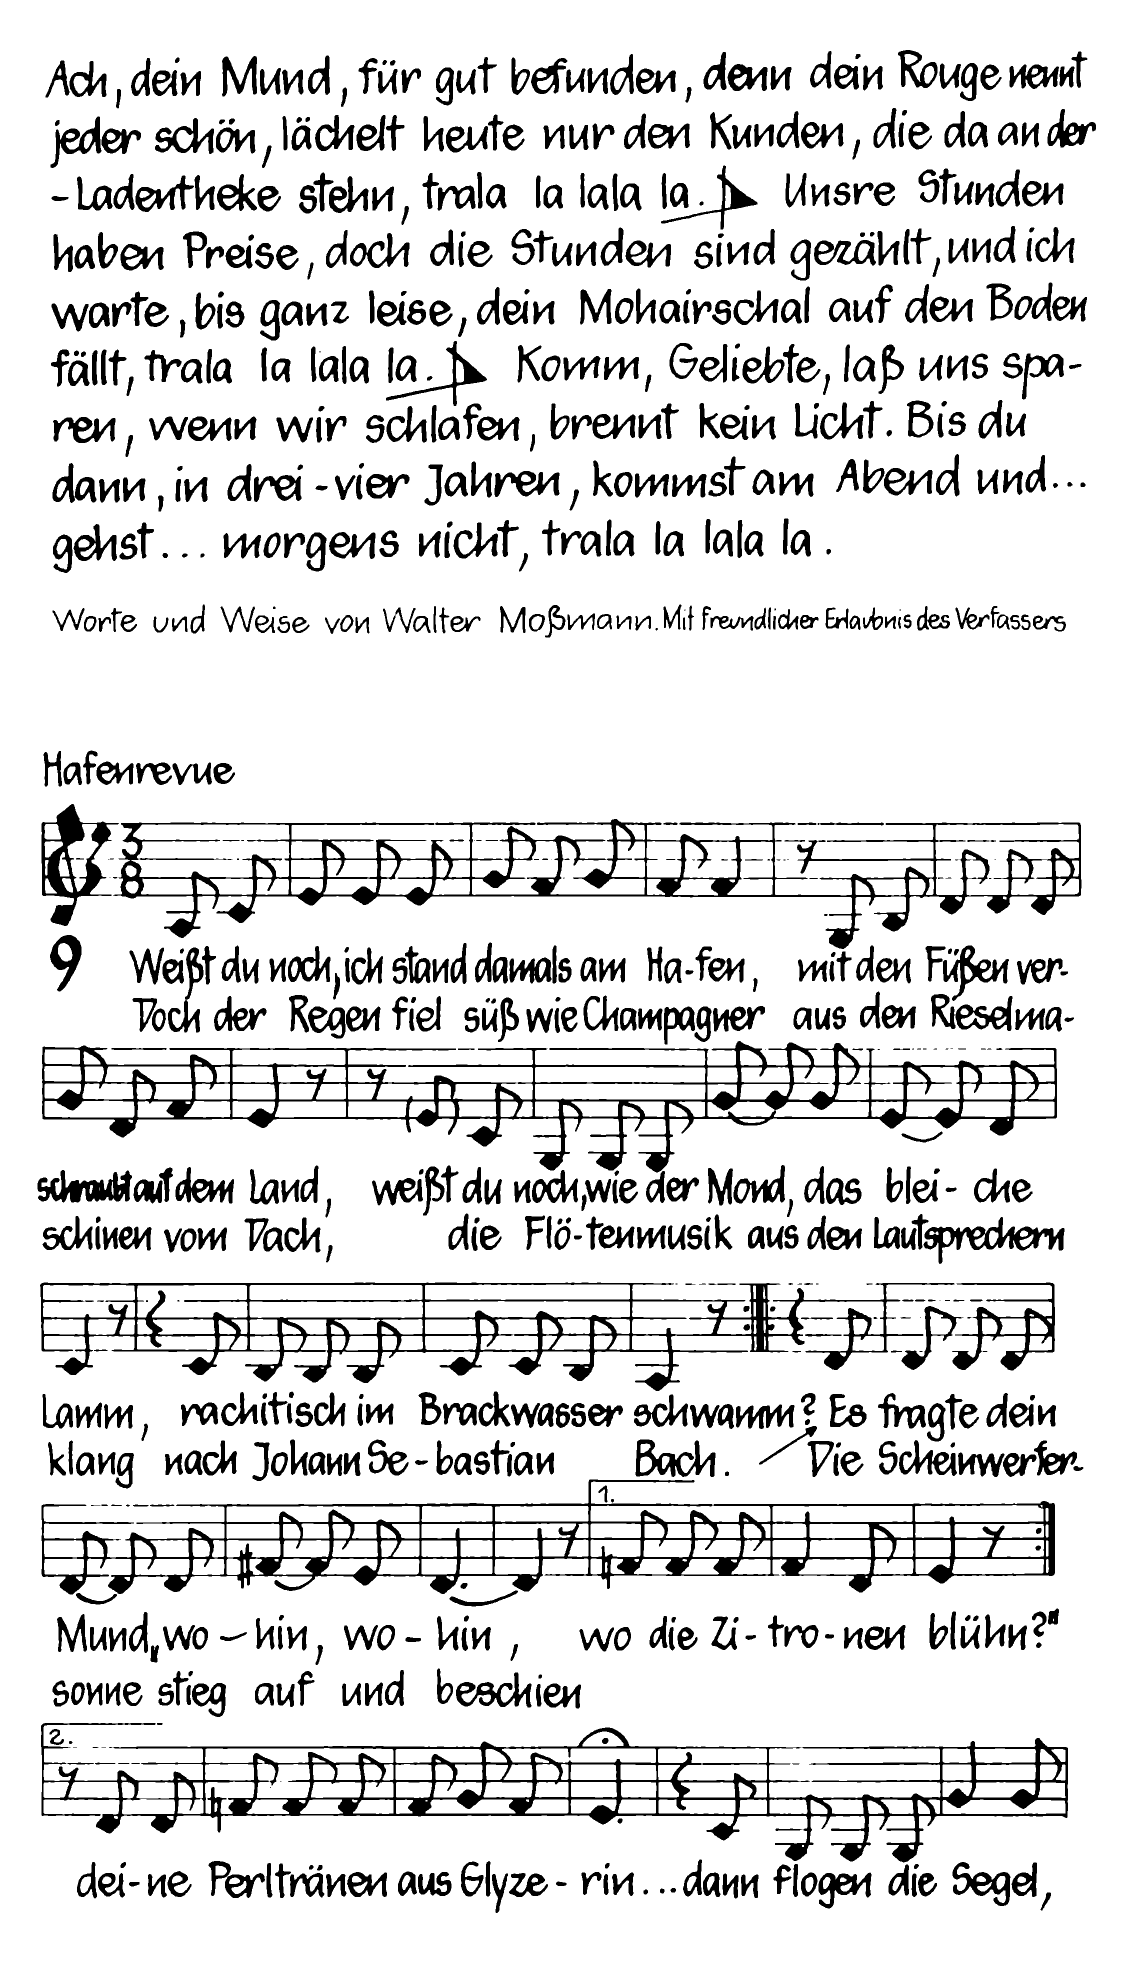 Ach, dein Mund, für gut befunden, denn dein Rouge nennt
jeder schön, lächelt heute nur den Kunden, die da an der
-Ladentheke stehn, trala la lala la. Unsre Stunden
haben Preise, doch die Stunden sind gezählt, und ich
warte, bis ganz leise, dein Mohairschal auf den Boden
fällt, trala la lala la. Komm, Geliebte, laß uns spa-
ren, wenn wir schlafen, brennt kein Licht. Bis du
dann, in drei-vier Jahren, kommst am Abend und...
gehst... morgens nicht, trala la lala la.
Worte und Weise von Walter Moßmann. Mit freundlicher Erlaubnis des Verfassers
Hafenrevue
3
8
9 Weißt du noch, ich stand damals am Ha-fen, mit den Füßen ver-
Doch der Regen fiel süß wie Champagner aus den Rieselma-
schraubt auf dem Land, weißt du noch, wie der Mond, das blei-che
schinen vom Dach, die Flö-tenmusik aus den Lautsprechern
Lamm, rachitisch im Brackwasser schwamm? Es fragte dein
klang nach Johann Se-bastian Bach. Die Scheinwerfer-
1.
Mund „wo-hin, wo-hin, wo die Zi-tro-nen blühn?"
sonne stieg auf und beschien
2.
dei-ne Perltränen aus Glyze-rin... dann flogen die Segel,